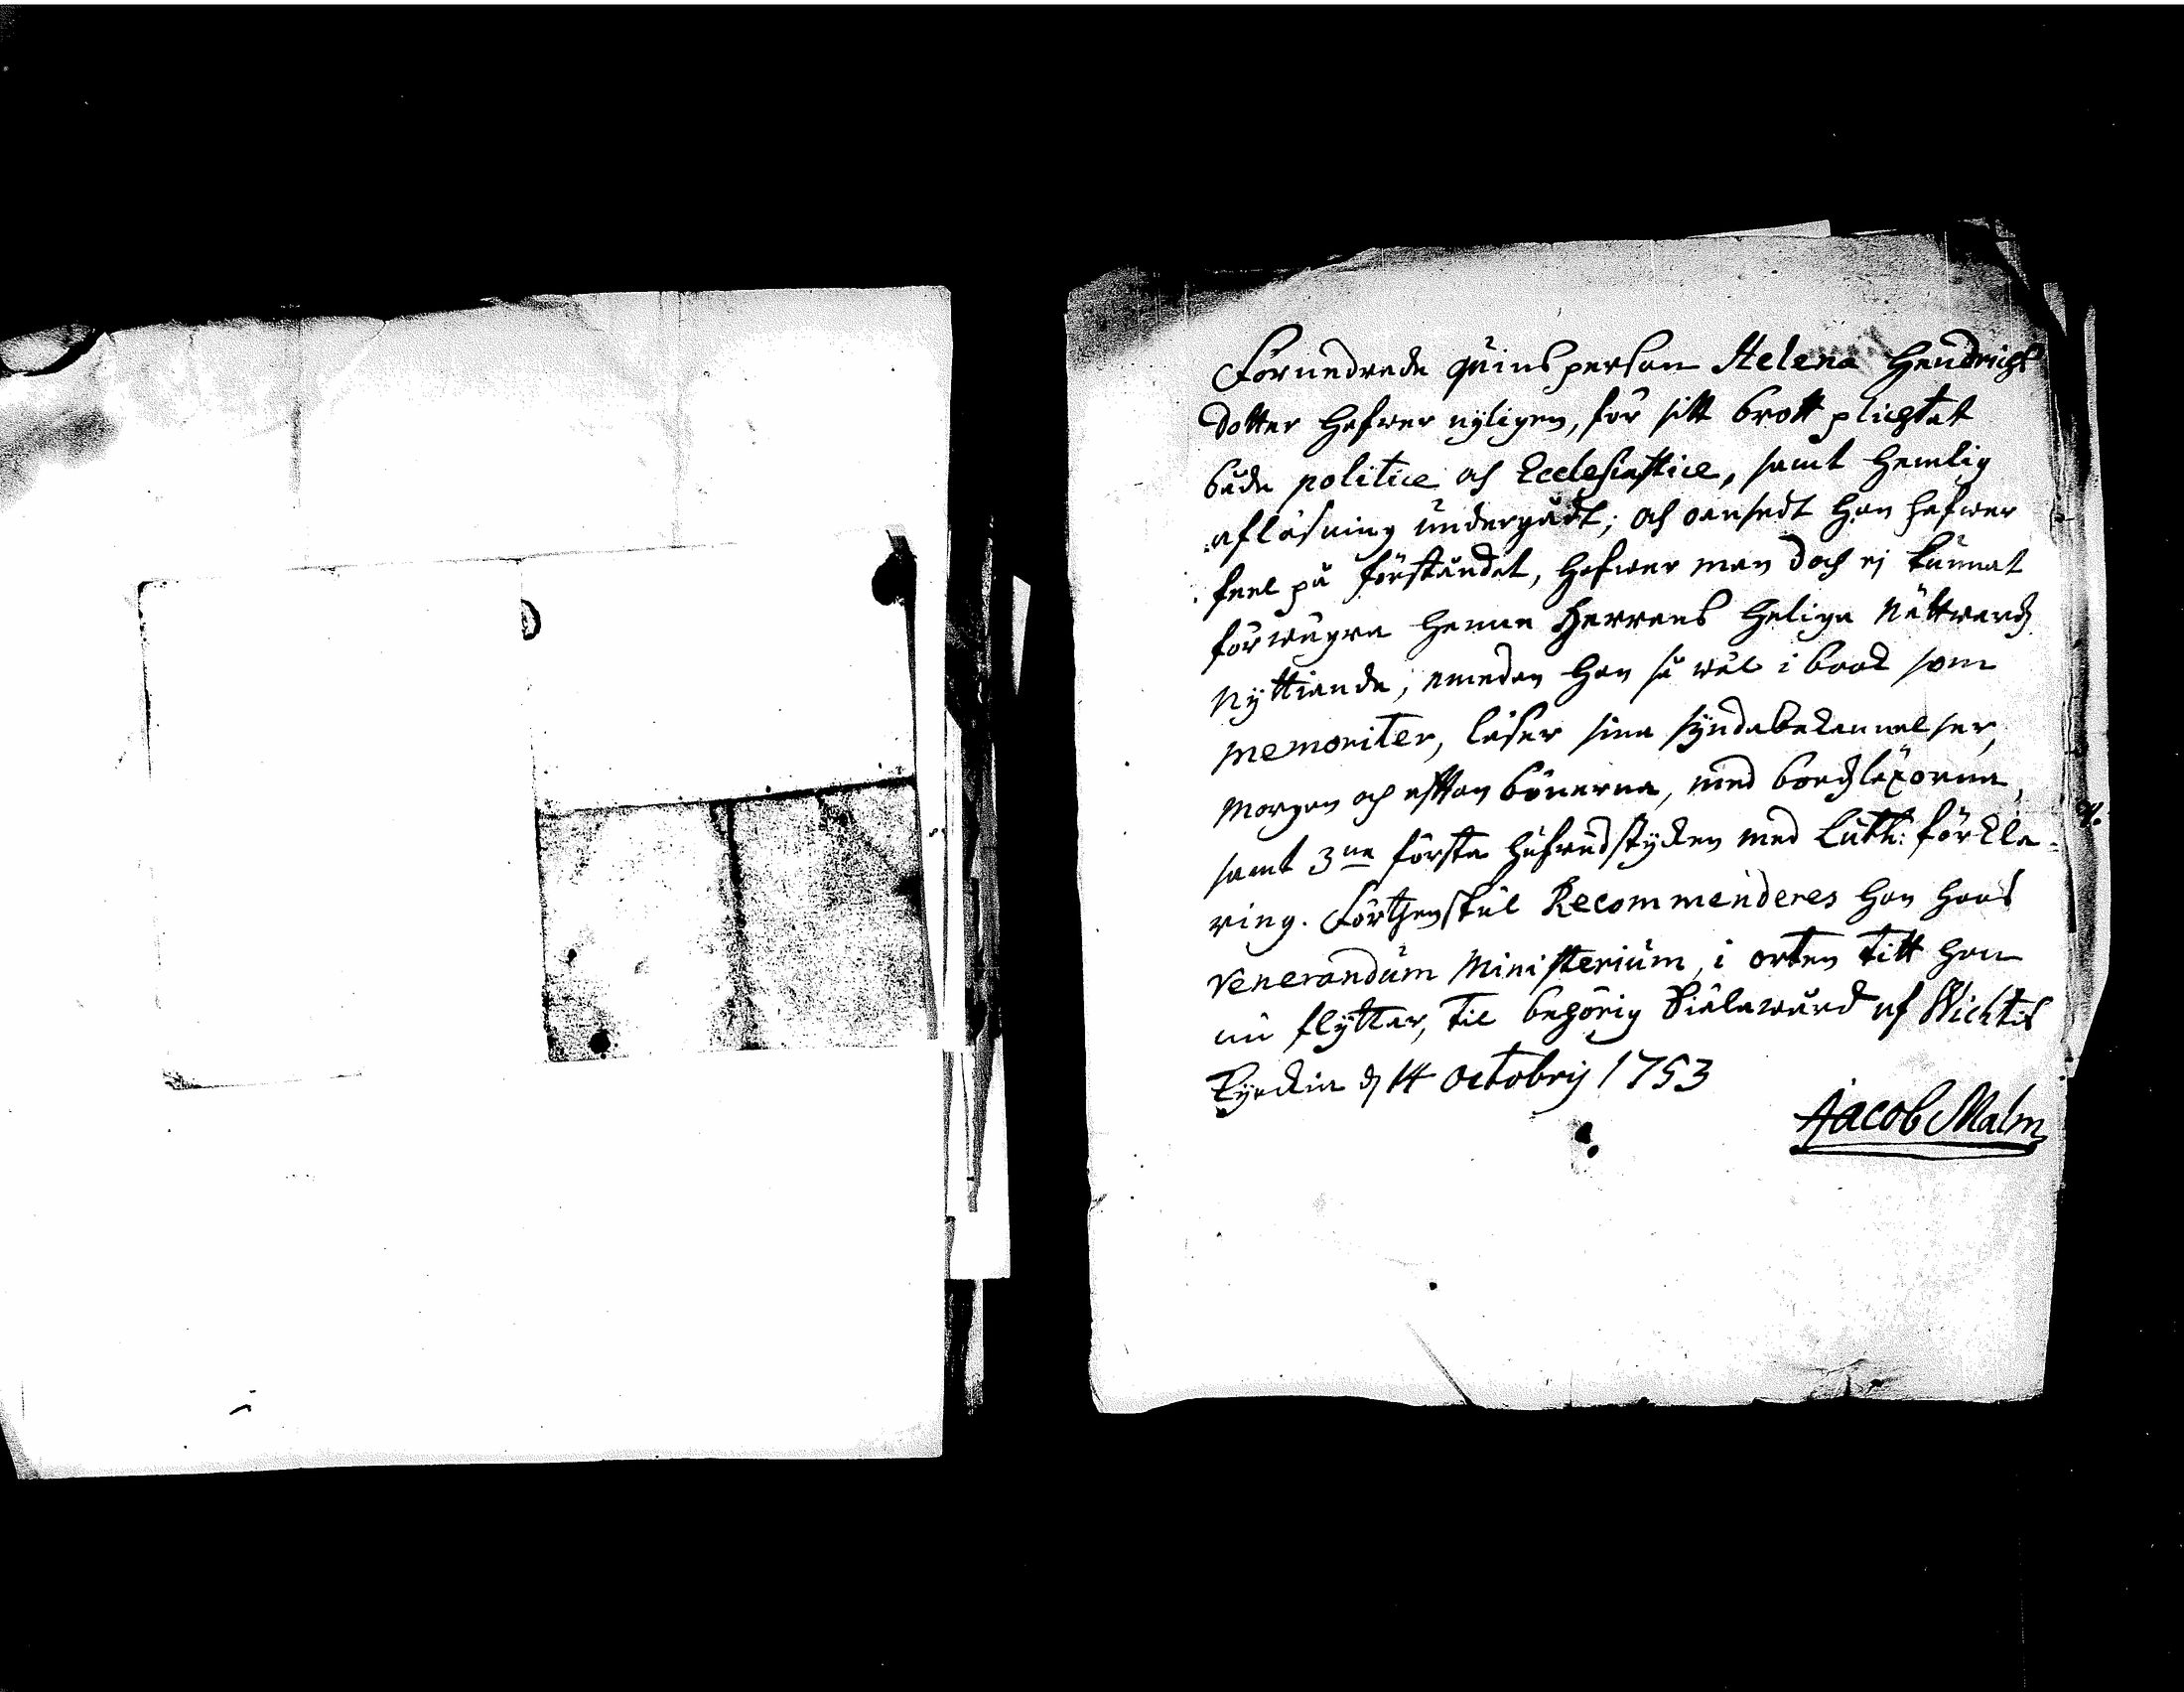 Förnedrade qvinsperson Helena Hendrichs
dotter hafwer nyligen, för sitt brott plichtat
både politice och Ecclesiastice, samt hemlig
aflösning undergådt; och oansedt hon hafwer
feel på förståndet, hafwer man doch ej kunnat
förwägra henne Herrans heliga Nattward
Nyttiande, emedan hon så wäl i book som
memoriter, läser sina syndabekännelser,
morgon och afton bönerna, med bordzläxorna,
samt 3ne första hufwudstycken med Luth: förkla-
ring. Förthenskul Recommenderes hon hoos
Venerandum Ministerium, i orten titt hon
nu flyttar, til behörig Siälawård af Wichtis
Kyrckia d 14 Octobris 1753
Jacob Malm